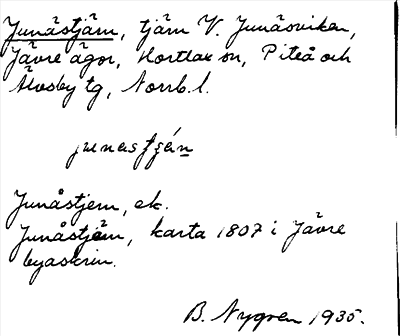 Junåstjärn, tjärn V. Junåsviken,
Jävre ägor, Hortlax sn, Piteå och
Älvsby tg, Norrb. l.
junastján
Junåstjern, ek.
Junåstjärn, karta 1807 i Jävre
byaskrin.
B. Nygren 1935.